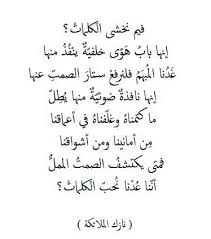 فيم نخشى الكلماتْ ؟
إنها بابُ هَوًى خلفيّةٌ ينفُذُ منها
غَدُنا المبهَم فلنرفعْ ستارَ الصمتِ عنها
إنها نافذةٌ ضوئيّةٌ منها يُطِلّ
ما كتمناهُ وغلّفناهُ في أعماقنا
مِن أمانينا ومن أشواقنا
فمتى يكتشفُ الصمتُ المملُّ
أنّنا عُدْنا نُحبّ الكلماتْ ؟
( نازك الملائكة )